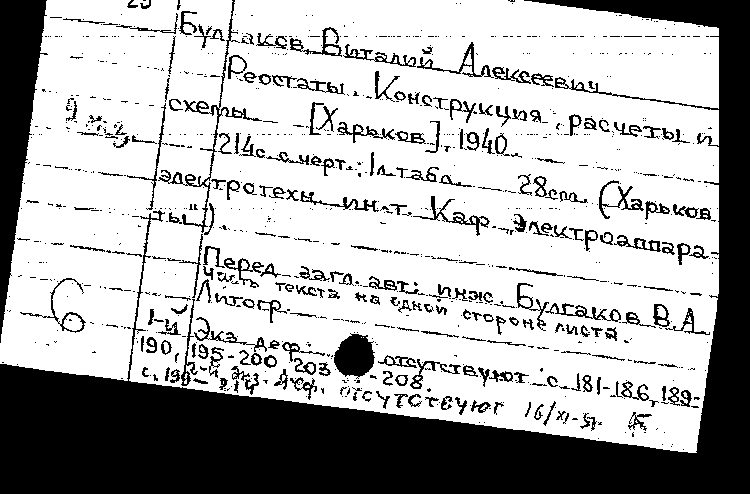 Булгаков, Виталий Алексеевич
Реостаты. Конструкция, расчеты и
схемы. [Харьков], 1940.
214с. с черт.; 1л. табл. 28см. (Харьков.
электротехн. ин-т. Каф. "Электроаппара-
ты").
Перед загл. авт: инж. Булгаков В.А.
Часть текста на одной стороне листа.
Литогр.
1-й Экз. деф: отсутствуют с. 181-186, 189-
190, 195-200, 203 -208.
2-й экз. деф. отсутствуют
6